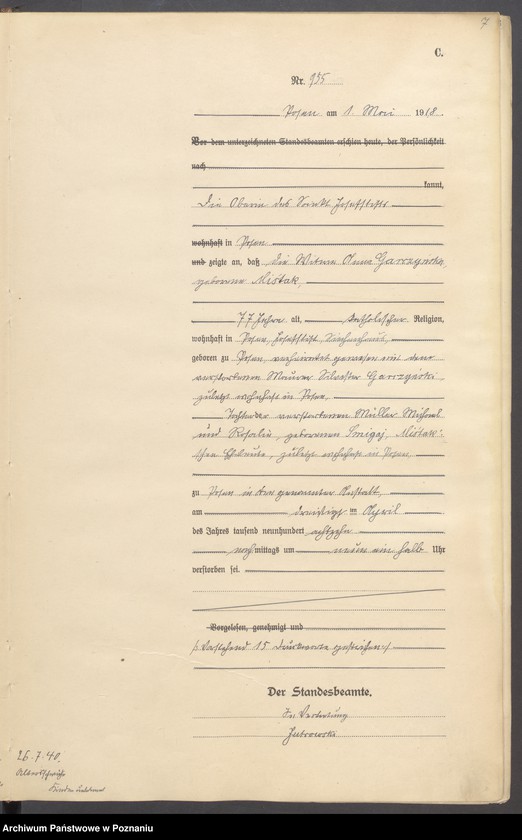 7
C.
Nr. 935
Posen am 1. Mai 1918.
Vor dem unterzeichneten Standesbeamten erschien heute, der Persönlichkeit
nach
kannt,
Die Oberin des Sankt Josefstifts
wohnhaft in Posen
und zeigte an, daß die Witwe Anna Garczyńska,
geborene Miśtak,
77 Jahre alt, katholischer Religion,
wohnhaft in Posen, Josefstift, Siechenhaus,
geboren zu Posen, verheiratet gewesen mit dem
verstorbenen Maurer Silvester Garczyński,
zuletzt wohnhaft in Posen,
Tochter der verstorbenen Müller Michael
und Rosalie, geborenen Smigaj, Miśtak-
schen Eheleute, zuletzt wohnhaft in Posen,
zu Posen in oben genannter Anstalt,
am dreißigsten April
des Jahres tausend neunhundert achtzehn
nachmittags um neun ein halb Uhr
verstorben sei.
Vorgelesen, genehmigt und
/: Vorstehend 15 Druckworte gestrichen :/
Der Standesbeamte.
In Vertretung
26.7.40.
Archiwum Państwowe w Poznaniu